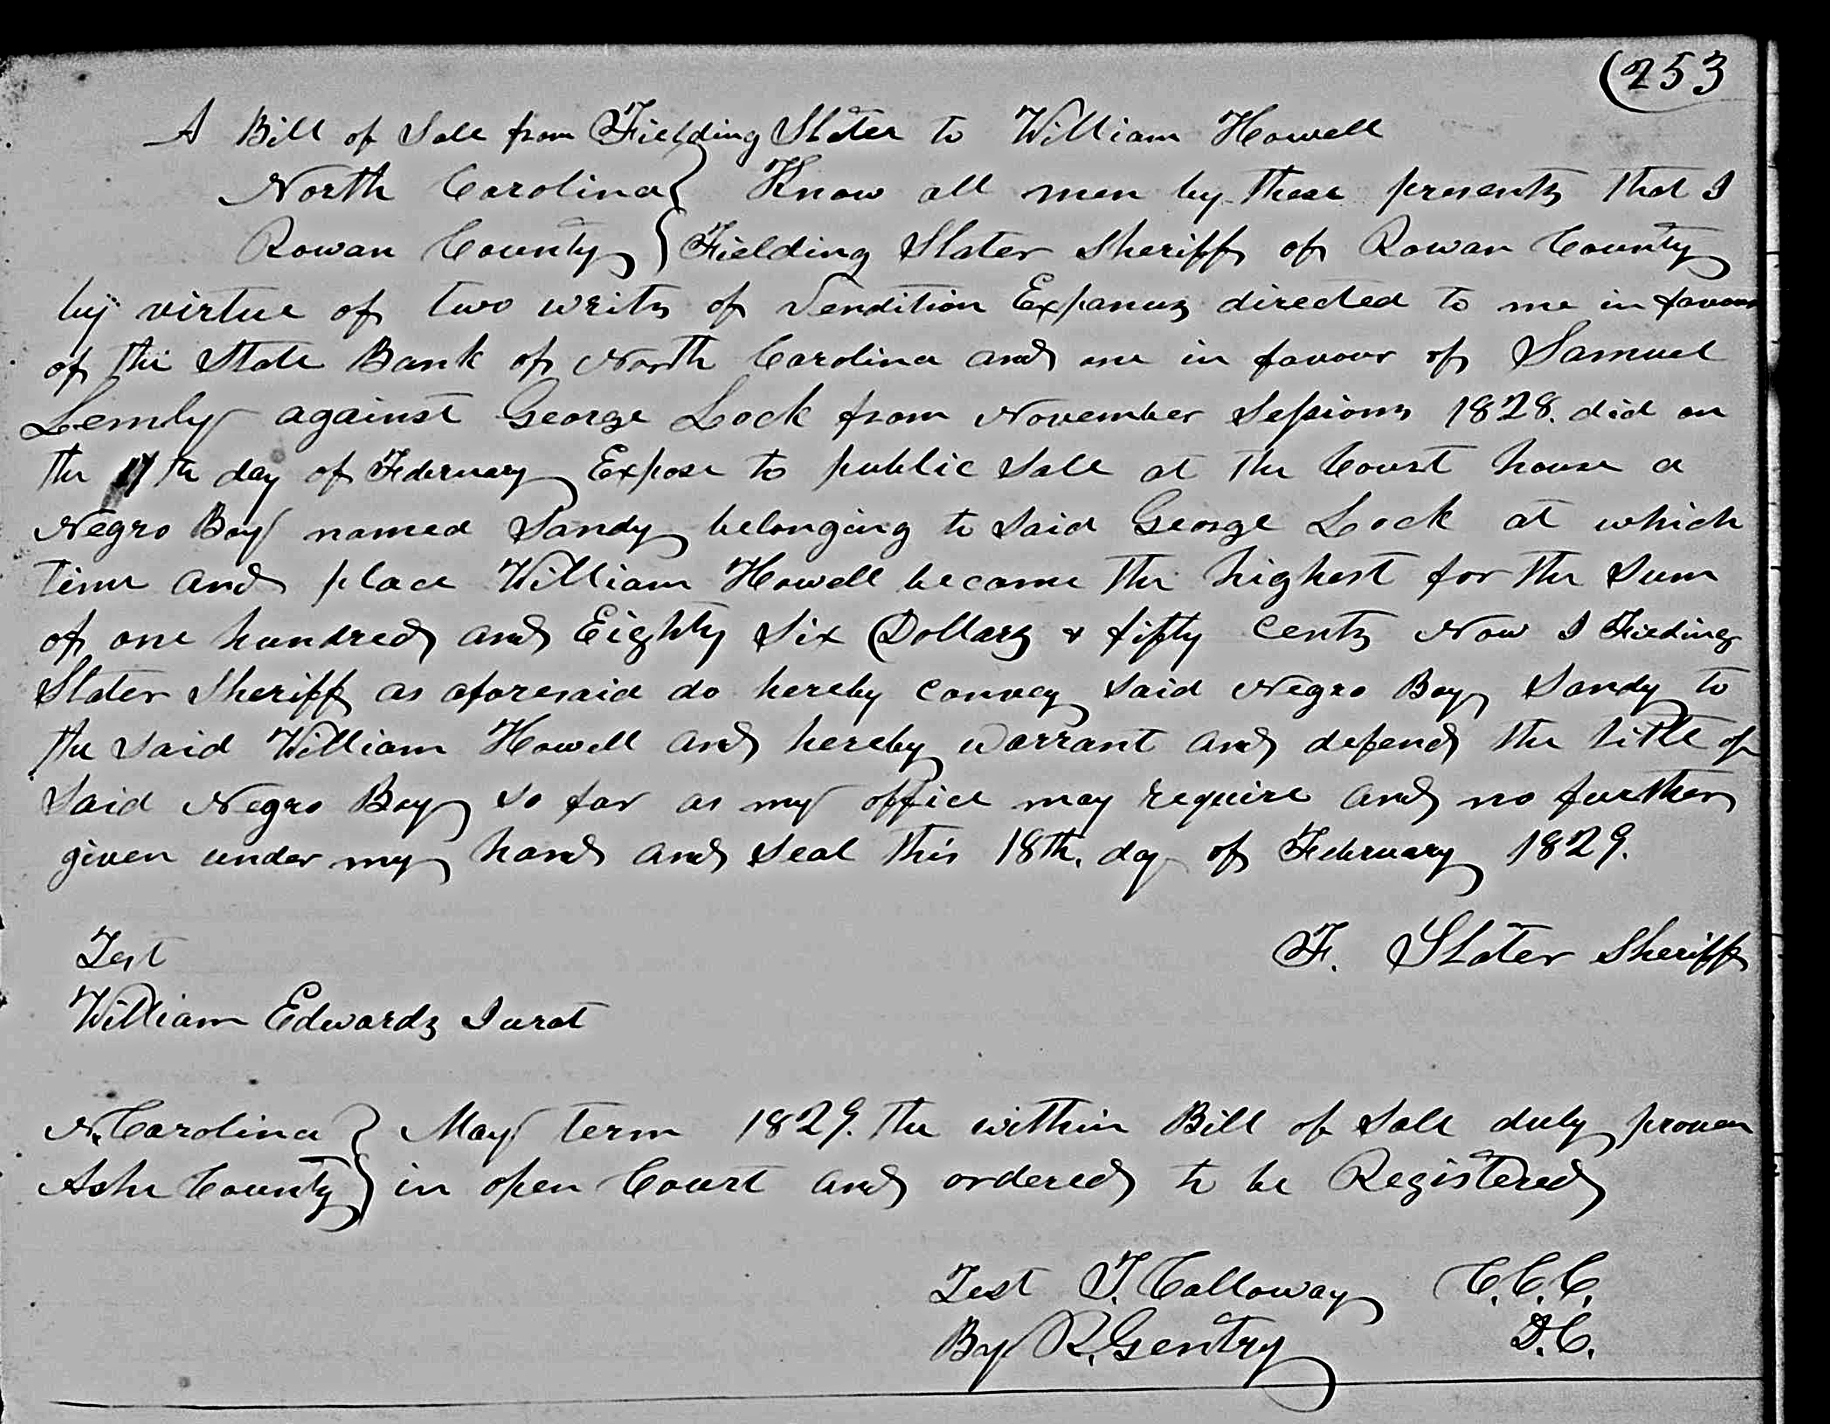 (253
A Bill of Sale from Fielding Slater to William Howell
North Carolina } Know all men by these presents that I
Rowan County } Fielding Slater Sheriff of Rowan County
by virtue of two writs of Vendition Expanus directed to me in favour
of the State Bank of North Carolina and one in favour of Samuel
Lemly against George Lock from November Sessions 1828. did on
the 17th day of February Expose to public Sale at the Court house a
Negro Boy named Sandy belonging to Said George Lock at which
time and place William Howell became the highest for the Sum
of one hundred and Eighty Six Dollars & fifty Cents Now I Fielding
Slater Sheriff as aforesaid do hereby convey Said Negro Boy Sandy to
the Said William Howell and hereby warrant and defend the title of
Said Negro Boy so far as my office may require and no further
given under my hand and Seal this 18th. day of February 1829.
F. Slater Sheriff
Test
William Edwards Jurat
N. Carolina } May term 1829. the within Bill of Sale duly proven
Ashe County } in open Court and ordered to be Registered
Test T. Calloway C.C.C.
By R. Gentry D.C.